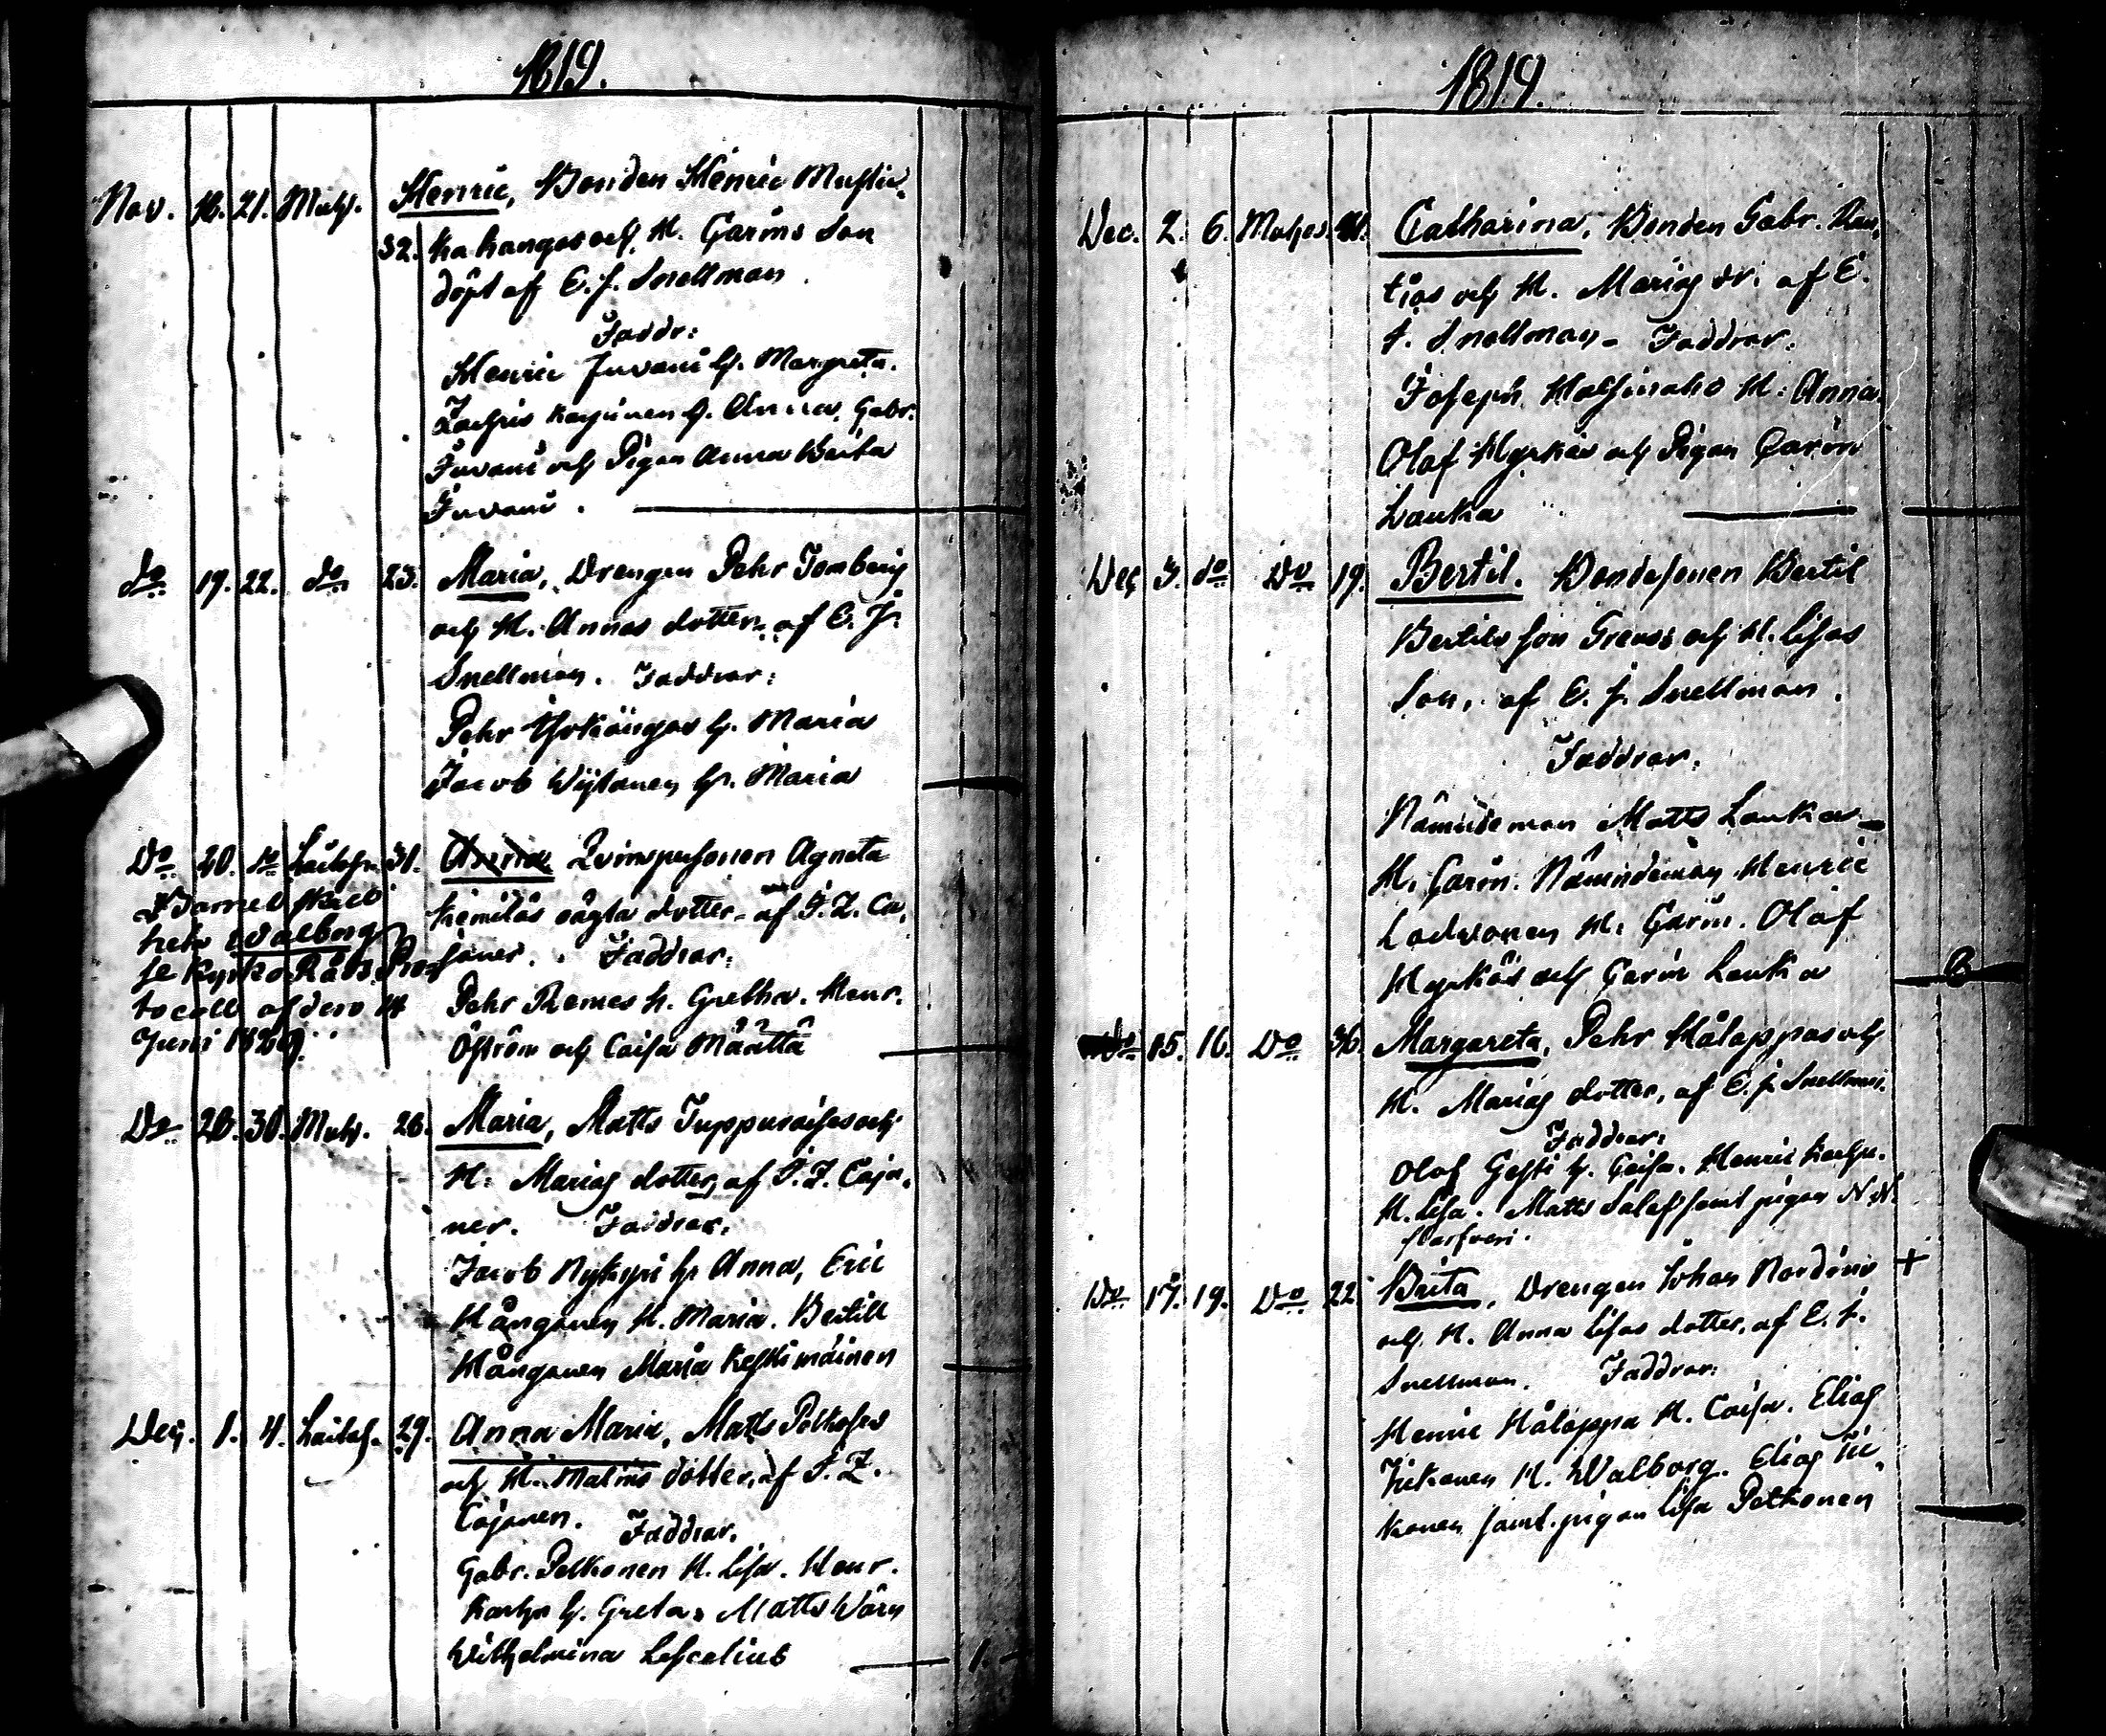 1819.
Nov. 16. 21. Muhos. Henric, Bonden Henric Mustu-
32. kakangas och H. Carins Son
döpt af E. J. Snellman.
Faddr:
Henric Juvani h. Margreta.
Zachris h. Anna, Gabr.
Juvani och Pigan Anna Brita
Juvani.
do 19. 22. do 23. Maria, Drengen Pehr Tomberg
och H. Annas dotter, af E. J.
Snellman. Faddrar:
Pehr h. Maria
Jacob h. Maria
Do 20. do 31. Anna Qvinspersonen Agneta
Kemiläs oägta dotter, af J. Z. Ca-
janer. Faddrar:
Pehr Remes h. Gretha. Henr.
Öström och Caisa Määttä
Barnet skall
heta Walborg
se Kyrko Råds Pro-
tocoll af den 14
Juni 1829.
Do 26. 30. Muh. 26. Maria, Matts Tuppuraises och
H. Marias dotter, af J. Z. Caja-
ner. Faddrar:
Jacob Nykyri h. Anna, Eric
Hånganen H. Maria. Bertill
Hånganen Maria Keskimäinen
Dec. 1. 4. 29. Anna Maria, Matts
och H. Malins dotter, af J. Z.
Cajanen. Faddrar.
Gabr. Pelkonen H. Lisa. Henr.
h. Greta, Matts
Wilhelmina
1.
1819.
Dec. 2. 6. Muhos. Catharina, Bonden Gabr.
och H. Marias dr. af E.
J. Snellman - Faddrar:
Joseph H: Anna.
Olof Hyrkäs och Pigan Carin
Lauka
Dec. 3. do Do 19. Bertil. Bondesonen Bertil
Bertils son och H. Lisas
Son, af E. J. Snellman.
Faddrar:
Nämndeman Matts Lauka
H. Carin. Nämndeman Henric
H. Carin. Olof
Hyrkäs och Carin Lauka
Do 15. 16. Do 36. Margareta, Pehr Hålappas och
H. Marias dotter, af E. J. Snellman.
Faddrar:
Olof h. Caisa. Henric
H. Lisa. Matts samt pigan N. N.
Do 17. 19. Do 22. Brita, Drengen Johan +
och H. Anna Lisas dotter, af E. J.
Snellman. Faddrar:
Henric Hålappa H. Caisa. Elias
H. Walborg. Elias
samt pigan Lisa Pelkonen